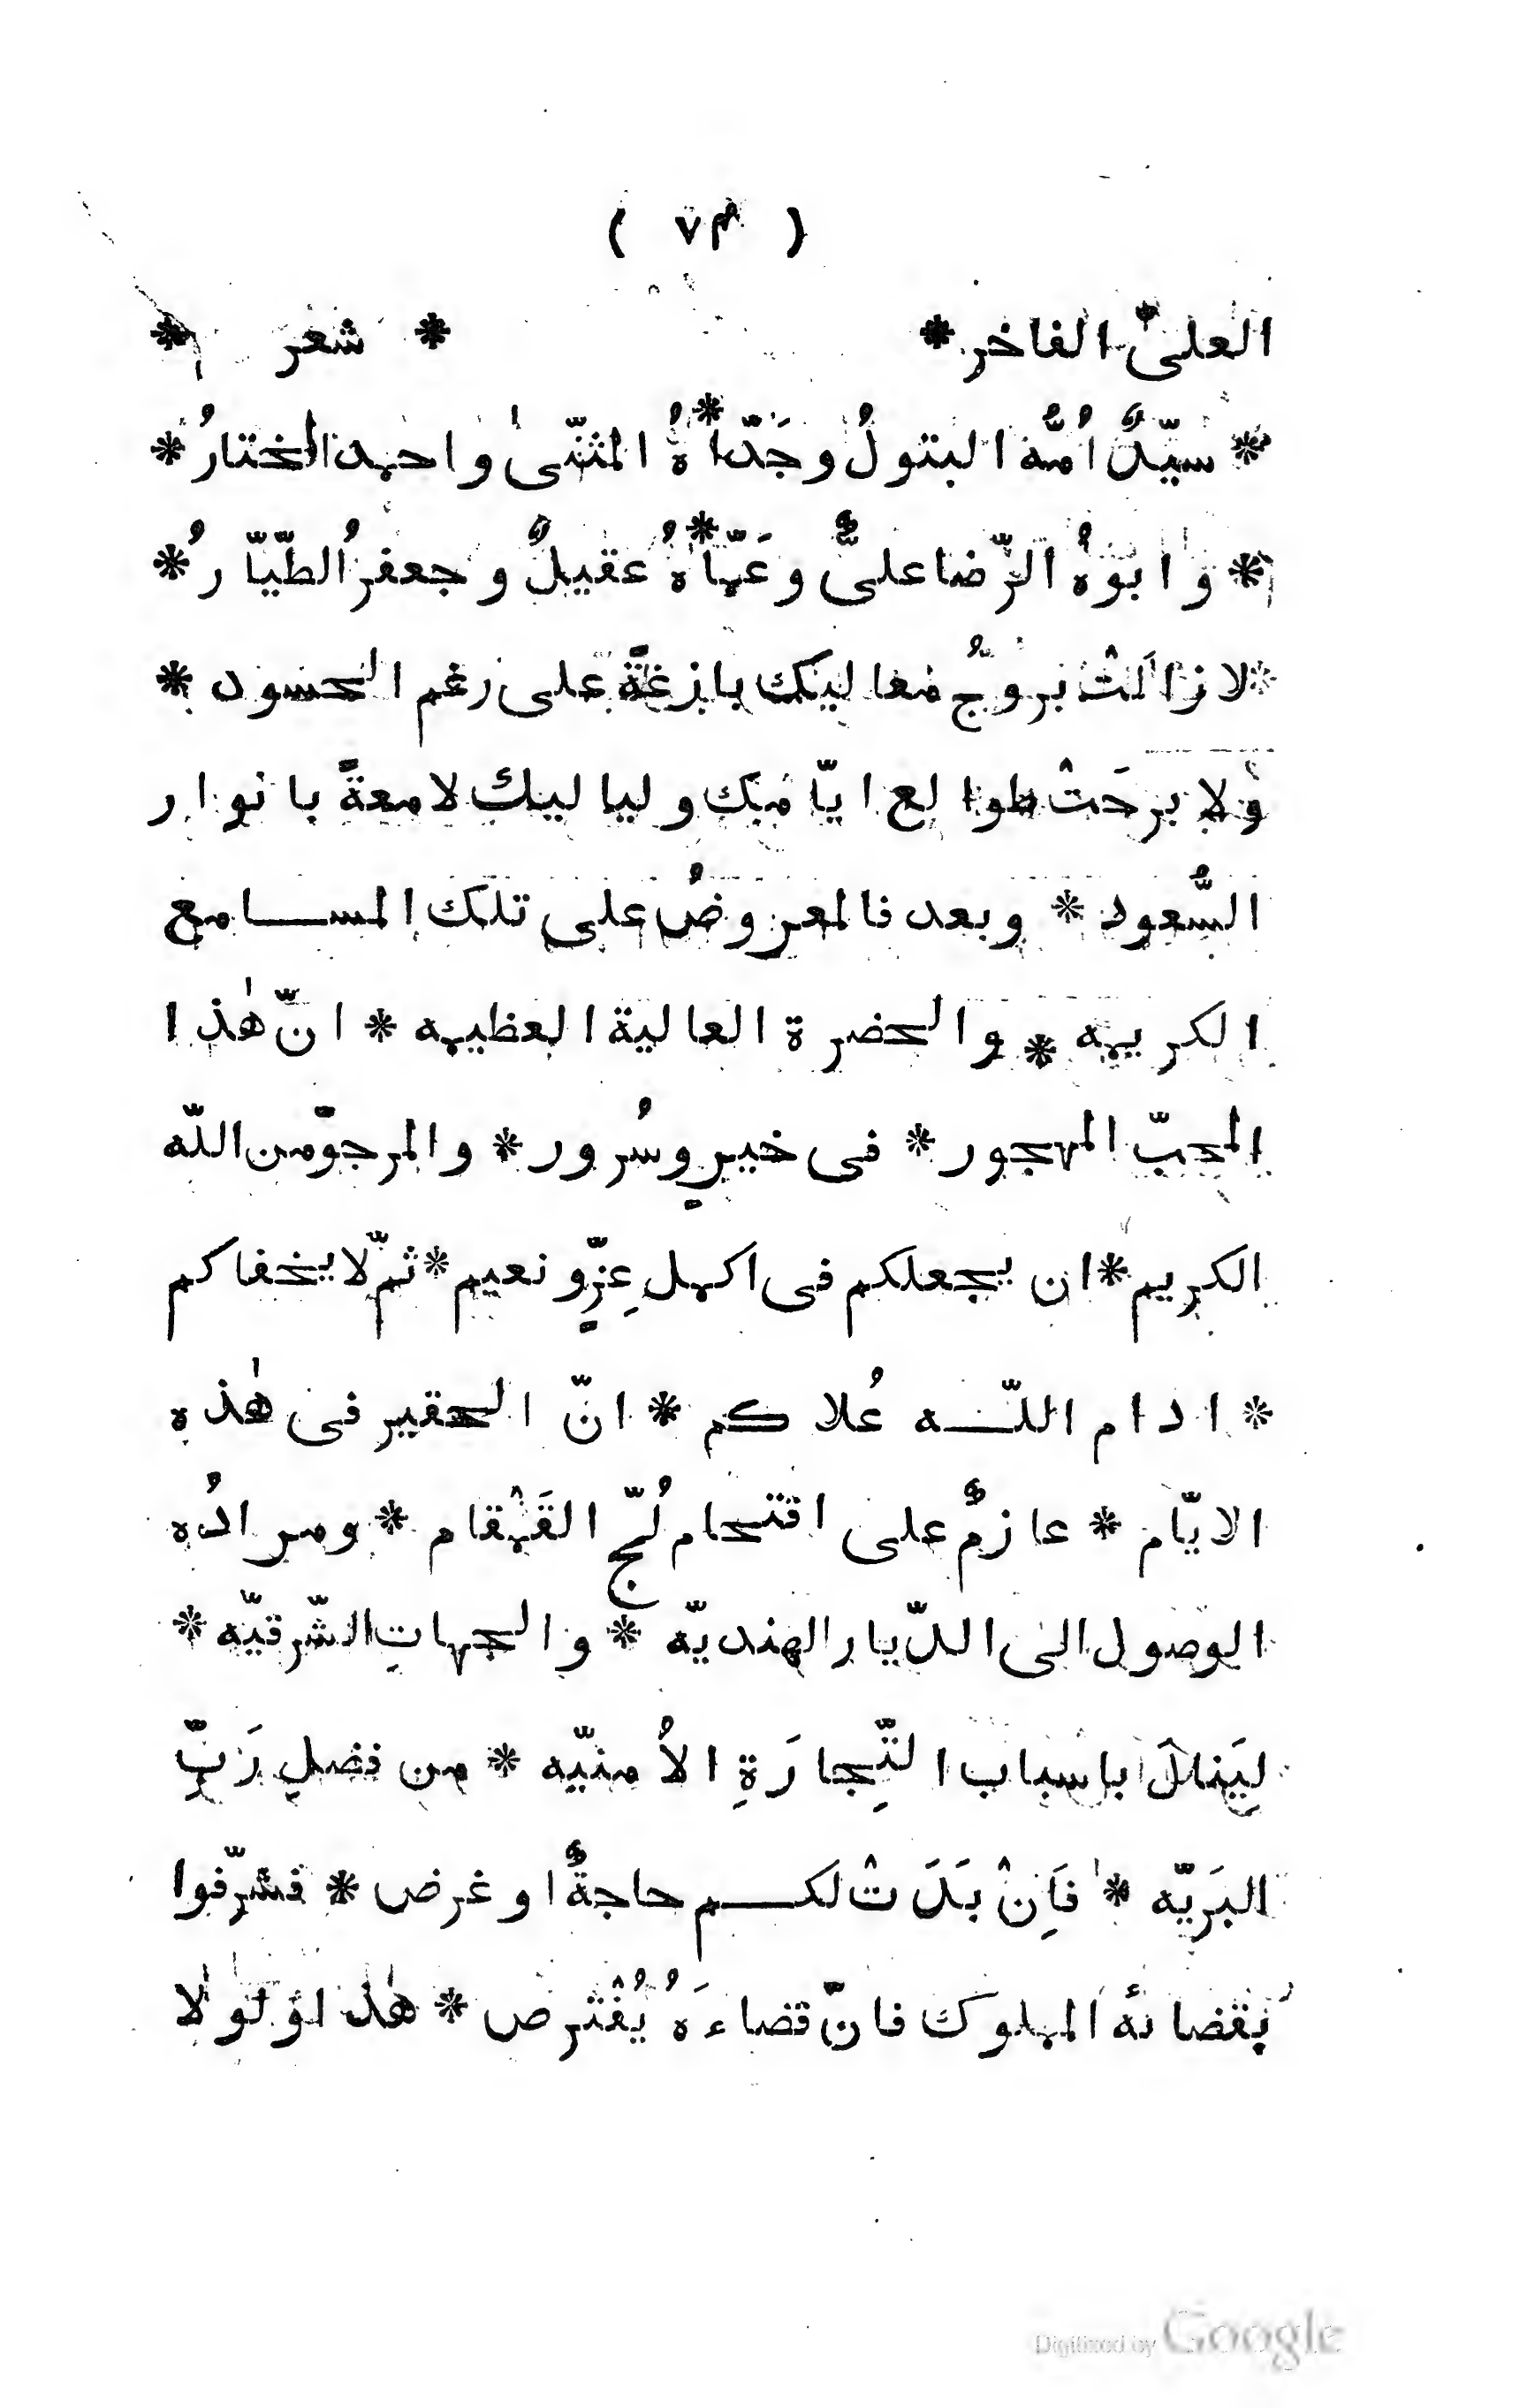 ( ٧٣ )
العلىّ الفاخر * * شعر *
* سيّدٌ اُمُّه البتولُ وجَدّاهُ * المثنّى واحمد المختارُ *
* وابوهُ الرّضا علىٌّ وعَمّاهُ * عقيلٌ وجعفرُ الطّيّارُ *
* لازالَتْ بروجُ معاليك بازغةً على رغم الحسود *
ولا برحَتْ طوالع ايّامك ولياليك لامعةً بانوار
السُّعود * وبعد فالمعروضُ على تلك المسامع
الكريمه * والحضرة العالية العظيمه * انّ هٰذا
المحبّ المهجور * فى خيرٍ وسُرور * والمرجوّ من اللّه
الكريم * ان يجعلكم فى اكمل عِزٍّ ونعيم * ثمّ لا يخفاكم
* ادام اللّه عُلاكم * انّ الحقير فى هٰذه
الايّام * عازمٌ على اقتحام لُجّ القَمْقام * ومرادُه
الوصول الى الدّيار الهنديّه * والجهاتِ الشّرقيّه *
لِيَنالَ باسباب التِّجارَةِ الاُمنيّه * من فضلِ رَبِّ
البَريّه * فَاِنْ بَدَتْ لكم حاجةٌ او غرض * فشرّفوا
بقضائه المملوك فانّ قضاءَهُ يُفْترض * هٰذا ولولا